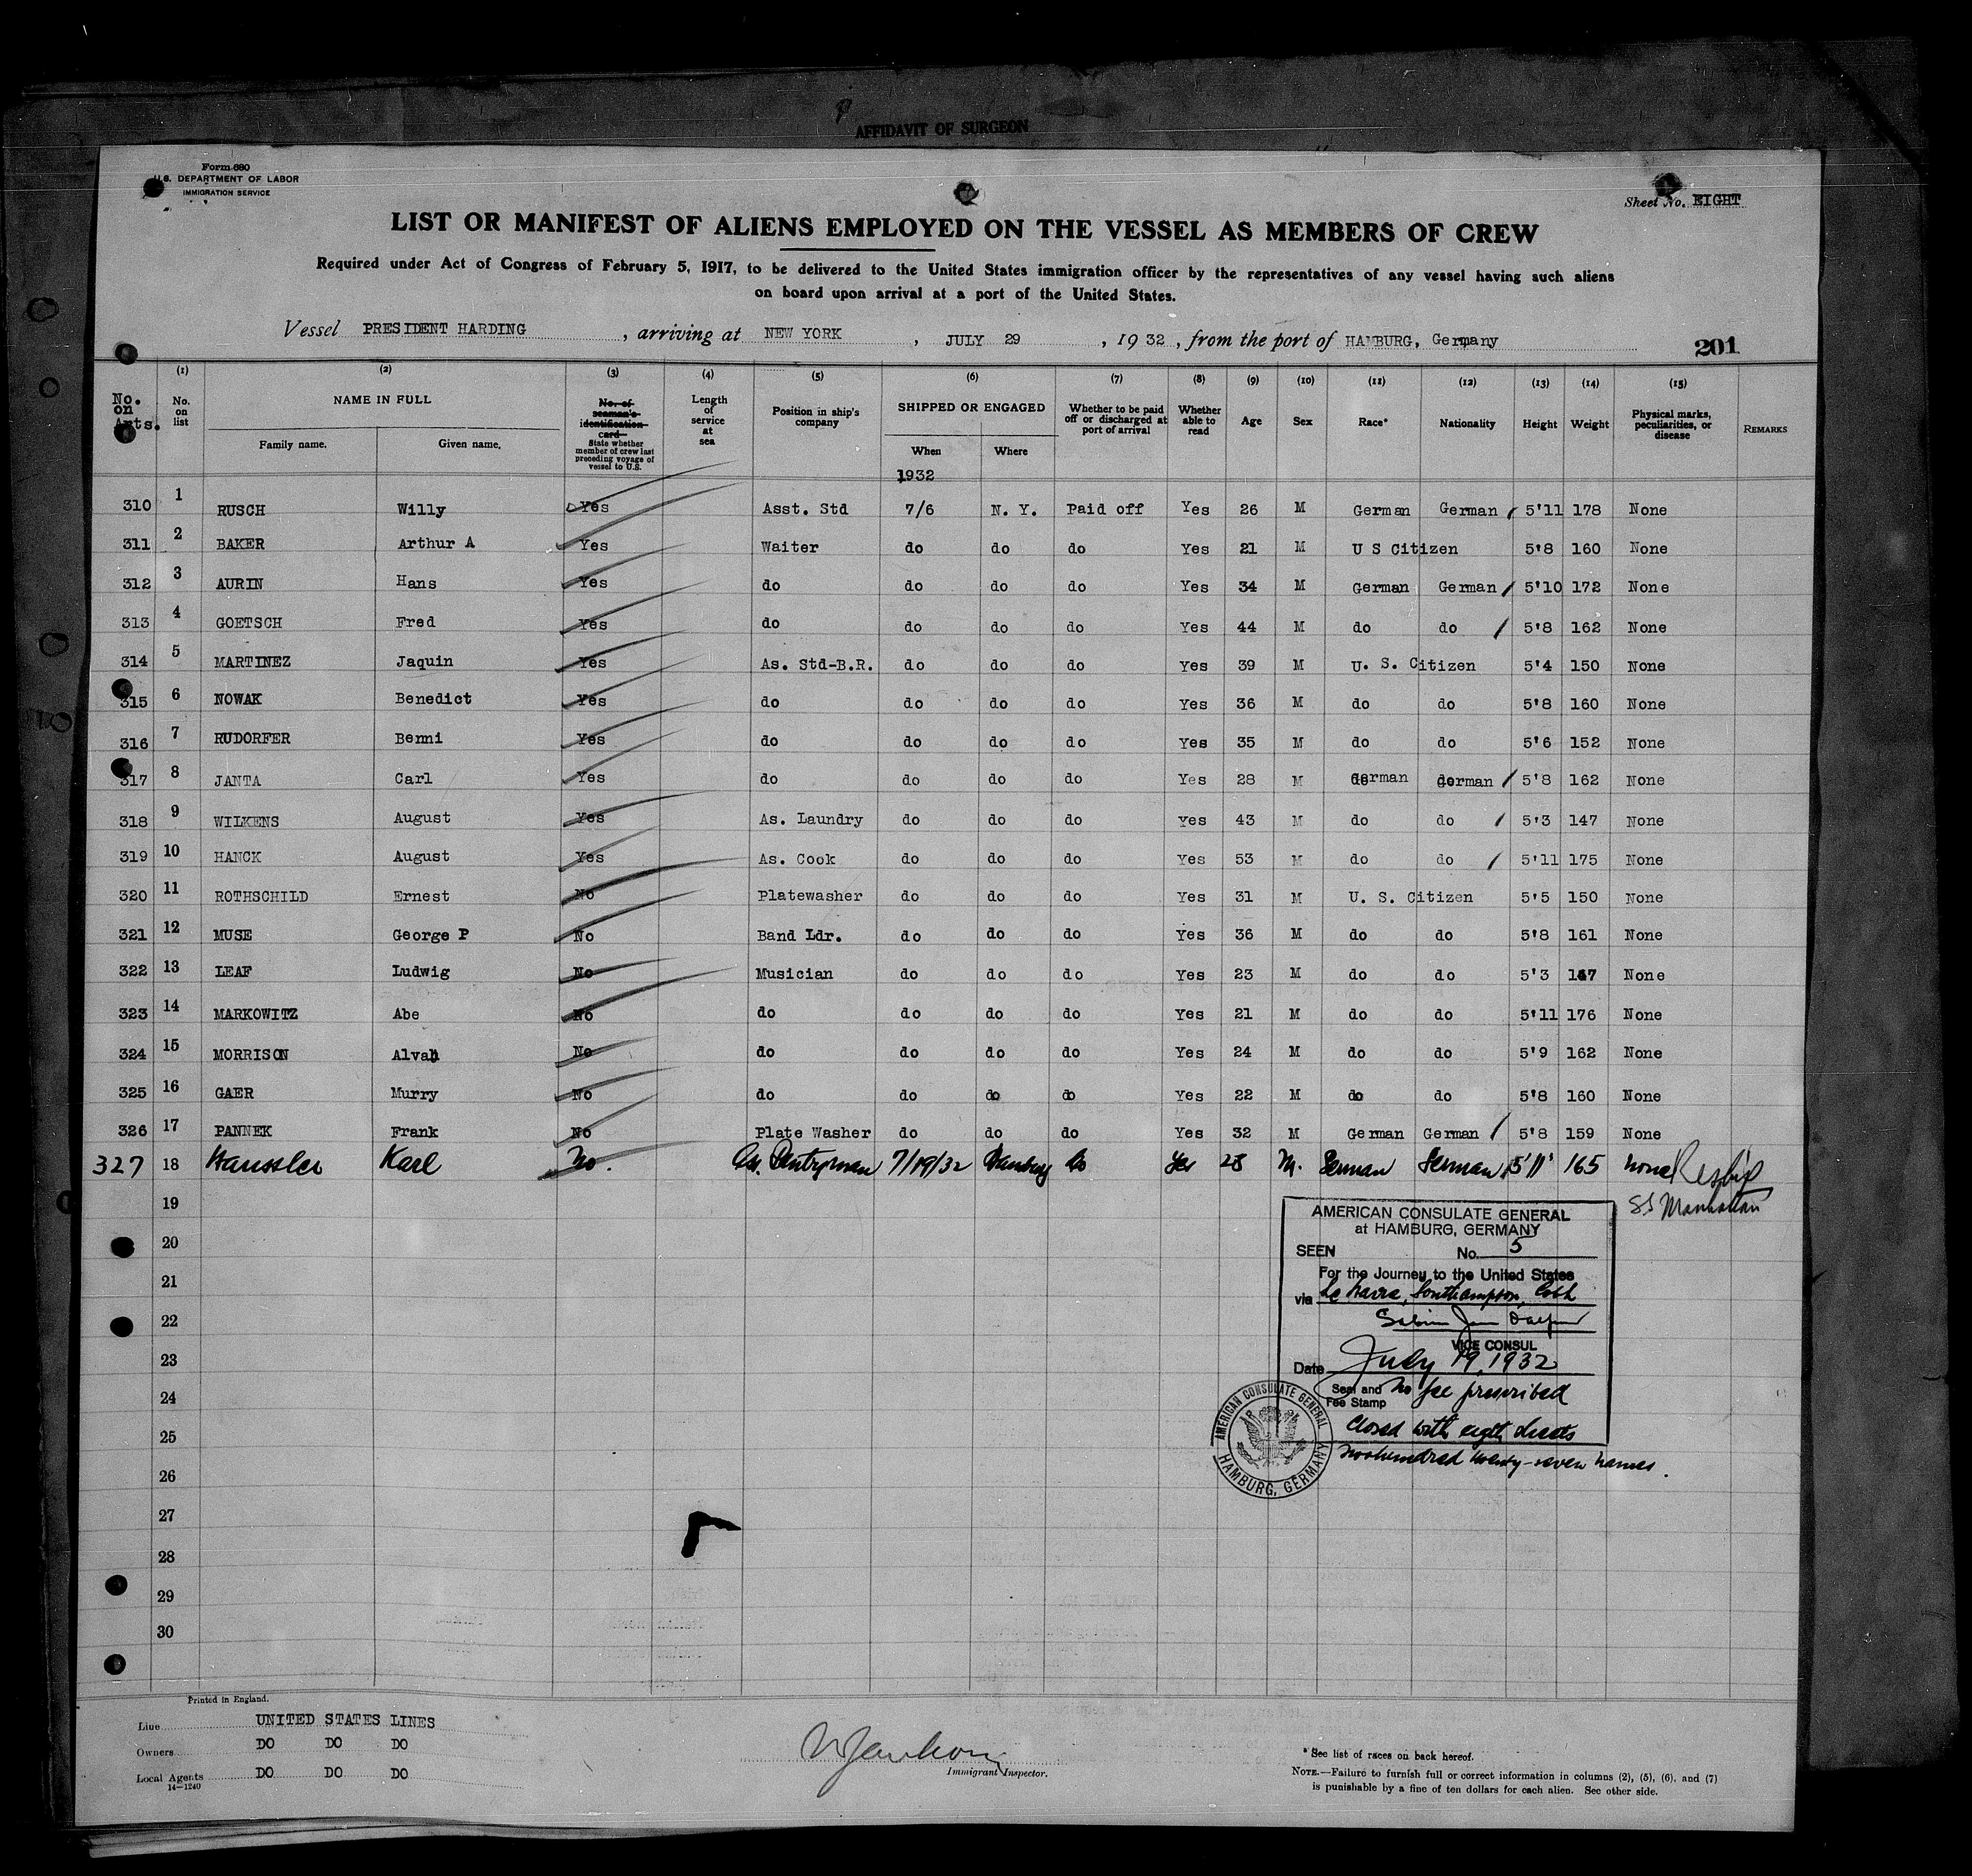 AFFIDAVIT OF SURGEON
Form 680
U.S. DEPARTMENT OF LABOR
IMMIGRATION SERVICE
Sheet No. EIGHT
LIST OR MANIFEST OF ALIENS EMPLOYED ON THE VESSEL AS MEMBERS OF CREW
Required under Act of Congress of February 5, 1917, to be delivered to the United States immigration officer by the representatives of any vessel having such aliens
on board upon arrival at a port of the United States.
Vessel PRESIDENT HARDING, arriving at NEW YORK, JULY 29, 1932, from the port of HAMBURG, Germany
201
(1) (2) (3) (4) (5) (6) (7) (8) (9) (10) (11) (12) (13) (14) (15)
No. on Arts. No. on list NAME IN FULL Family name. Given name. No. of seaman's identification card State whether member of crew last preceding voyage of vessel to U.S. Length of service at sea Position in ship's company SHIPPED OR ENGAGED When Where Whether to be paid off or discharged at port of arrival Whether able to read Age Sex Race* Nationality Height Weight Physical marks, peculiarities, or disease REMARKS
1932
310 1 RUSCH Willy Yes Asst. Std 7/6 N. Y. Paid off Yes 26 M German German / 5'11 178 None
311 2 BAKER Arthur A Yes Waiter do do do Yes 21 M U S Citizen 5'8 160 None
312 3 AURIN Hans Yes do do do do Yes 34 M German German / 5'10 172 None
313 4 GOETSCH Fred Yes do do do do Yes 44 M do do / 5'8 162 None
314 5 MARTINEZ Jaquin Yes As. Std-B.R. do do do Yes 39 M U. S. Citizen 5'4 150 None
315 6 NOWAK Benedict Yes do do do do Yes 36 M do do 5'8 160 None
316 7 RUDORFER Benni Yes do do do do Yes 35 M do do 5'6 152 None
317 8 JANTA Carl Yes do do do do Yes 28 M German German / 5'8 162 None
318 9 WILKENS August Yes As. Laundry do do do Yes 43 M do do / 5'3 147 None
319 10 HANCK August Yes As. Cook do do do Yes 53 M do do / 5'11 175 None
320 11 ROTHSCHILD Ernest No Platewasher do do do Yes 31 M U. S. Citizen 5'5 150 None
321 12 MUSE George P No Band Ldr. do do do Yes 36 M do do 5'8 161 None
322 13 LEAF Ludwig No Musician do do do Yes 23 M do do 5'3 147 None
323 14 MARKOWITZ Abe No do do do do Yes 21 M do do 5'11 176 None
324 15 MORRISON Alvah No do do do do Yes 24 M do do 5'9 162 None
325 16 GAER Murry No do do do do Yes 22 M do do 5'8 160 None
326 17 PANNEK Frank No Plate Washer do do do Yes 32 M German German / 5'8 159 None
327 18 Haussler Karl No. As. Pantryman 7/19/32 Hamburg do Yes 28 M. German German 5'11" 165 none Reship
SS Manhattan
19
20
21
22
23
24
25
26
27
28
29
30
AMERICAN CONSULATE GENERAL
at HAMBURG, GERMANY
SEEN No. 5
For the Journey to the United States
via Le Havre, Southampton, Cobh
VICE CONSUL
Date July 19, 1932
Seal and Fee Stamp No fee prescribed
Closed with eigth sheets
twohundred twenty-seven names.
AMERICAN CONSULATE GENERAL
HAMBURG, GERMANY
Printed in England.
Line UNITED STATES LINES
Owners DO DO DO
Local Agents DO DO DO
14-1240
Immigrant Inspector.
* See list of races on back hereof.
NOTE.—Failure to furnish full or correct information in columns (2), (5), (6), and (7)
is punishable by a fine of ten dollars for each alien. See other side.